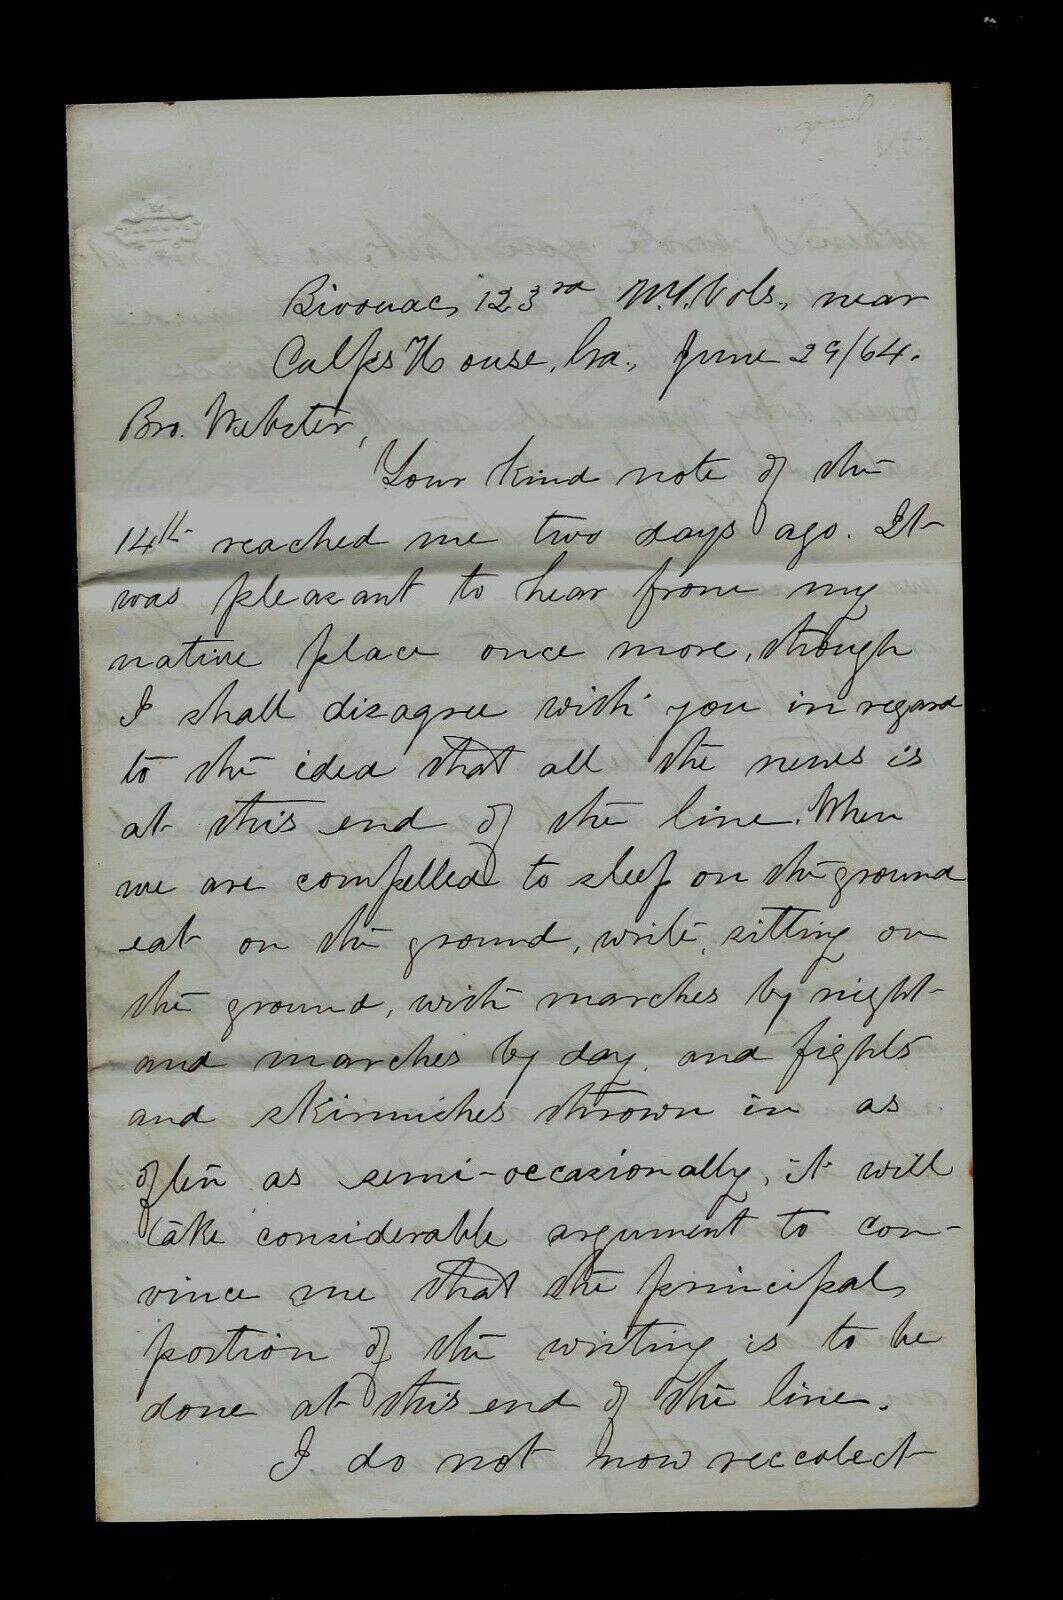 Bivouac, 123rd N.Y. Vols., near
Culps House, Ga., June 29/64.
Bro. Webster,
Your kind note of the
14th reached me two days ago. It
was pleasant to hear from my
native place once more, though
I shall disagree with you in regard
to the idea that all the news is
at this end of the line. When
we are compelled to sleep on the ground
eat on the ground, write, sitting on
the ground, with marches by night
and marches by day, and fights
and skirmiches thrown in as
often as semi-occasionally, it will
take considerable argument to con-
vince me that the principal
portion of the writing is to be
done at this end of the line.
I do not now reccolect